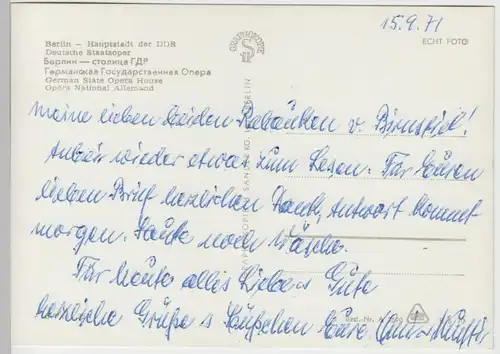 15.9.71
Berlin – Hauptstadt der DDR
Deutsche Staatsoper
Берлин — столица ГДР
Германская Государственная Опера
German State Opera House
Opéra National Allemand
ECHT FOTO
meine lieben beiden v.
Anbei wieder etwas zum Lesen. Für Euren
lieben Brief herzlichen Dank, Antwort kommt
morgen. Heute noch Wäsche.
Für heute alles Liebe u. Gute
herzliche Grüße u. Küßchen Eure